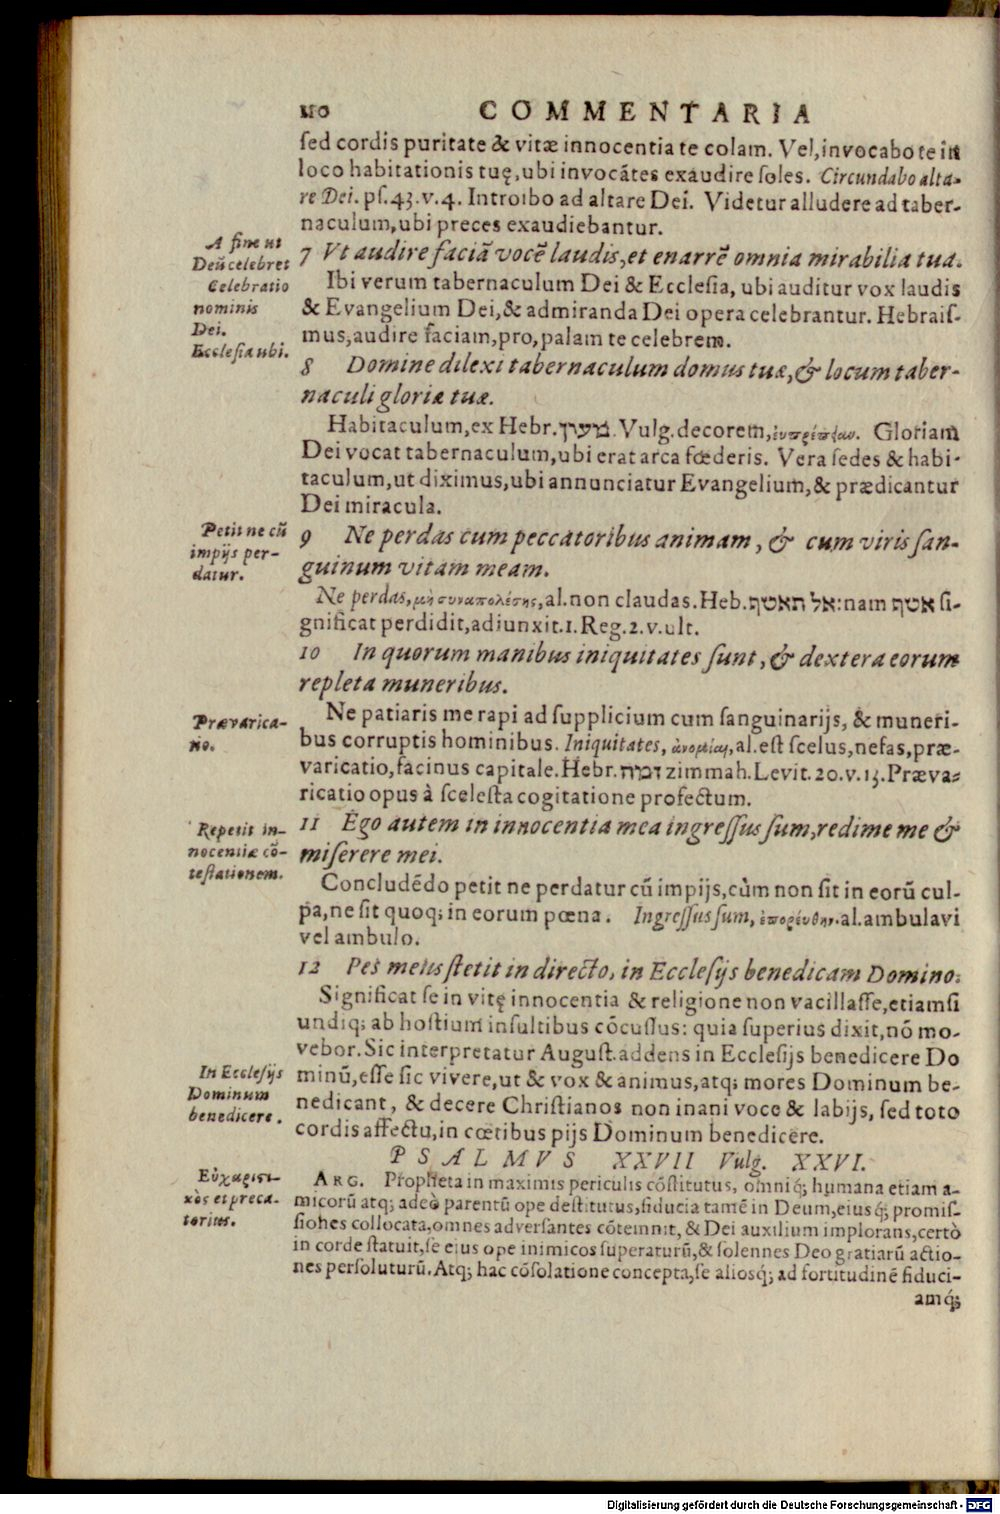 110 COMMENTARIA
ſed cordis puritate & vitæ innocentia te colam. Vel, invocabo te in
loco habitationis tuę, ubi invocãtes exaudire ſoles. Circundabo alta-
re Dei. pſ. 43. v. 4. Introibo ad altare Dei. Videtur alludere ad taber-
naculum, ubi preces exaudiebantur.
A fine ut
Deũ celebret
Celebratio
nominis
Dei.
Eccleſia ubi.
7 Vt audire faciã vocẽ laudis, et enarrẽ omnia mirabilia tua.
Ibi verum tabernaculum Dei & Eccleſia, ubi auditur vox laudis
& Evangelium Dei, & admiranda Dei opera celebrantur. Hebraiſ-
mus, audire faciam, pro, palam te celebrem.
8 Domine dilexi tabernaculum domus tuæ, & locum taber-
naculi gloriæ tuæ.
Habitaculum, ex Hebr. מעון. Vulg. decorem, εὐπρέπειαν. Gloriam
Dei vocat tabernaculum, ubi erat arca fœderis. Vera ſedes & habi-
taculum, ut diximus, ubi annunciatur Evangelium, & prædicantur
Dei miracula.
Petit ne cũ
impijs per-
datur.
9 Ne perdas cum peccatoribus animam, & cum viris ſan-
guinum vitam meam.
Ne perdas, μὴ συναπολέσῃς, al. non claudas. Heb. אל תאסף: nam אסף ſi-
gnificat perdidit, adiunxit. 1. Reg. 2. v. ult.
10 In quorum manibus iniquitates ſunt, & dextera eorum
repleta muneribus.
Prævarica-
tio.
Ne patiaris me rapi ad ſupplicium cum ſanguinarijs, & muneri-
bus corruptis hominibus. Iniquitates, ἀνομίαι, al. eſt ſcelus, nefas, præ-
varicatio, facinus capitale. Hebr. זמה zimmah. Levit. 20. v. 13. Præva-
ricatio opus à ſceleſta cogitatione profectum.
Repetit in-
nocentiæ cõ-
teſtationem.
11 Ego autem in innocentia mea ingreſſus ſum, redime me &
miſerere mei.
Concludẽdo petit ne perdatur cũ impijs, cùm non ſit in eorũ cul-
pa, ne ſit quoq; in eorum pœna. Ingreſſus ſum, ἐπορεύθην. al. ambulavi
vel ambulo.
12 Pes meus ſtetit in directo, in Eccleſijs benedicam Domino.
Significat ſe in vitę innocentia & religione non vacillaſſe, etiamſi
undiq; ab hoſtium inſultibus cõcuſſus: quia ſuperius dixit, nõ mo-
vebor. Sic interpretatur Auguſt. addens in Eccleſijs benedicere Do
minũ, eſſe ſic vivere, ut & vox & animus, atq; mores Dominum be-
nedicant, & decere Chriſtianos non inani voce & labijs, ſed toto
cordis affectu, in cœtibus pijs Dominum benedicere.
In Eccleſijs
Dominum
benedicere.
PSALMVS XXVII Vulg. XXVI.
Εὐχαριστι-
κὸς et preca-
torius.
ARG. Propheta in maximis periculis cõſtitutus, omniq́; humana etiam a-
micorũ atq; adeò parentũ ope deſtitutus, fiducia tamẽ in Deum, eiusq́; promiſ-
ſiones collocata, omnes adverſantes cõtemnit, & Dei auxilium implorans, certò
in corde ſtatuit, ſe eius ope inimicos ſuperaturũ, & ſolennes Deo gratiarũ actio-
nes perſoluturũ. Atq; hac cõſolatione concepta, ſe aliosq́; ad fortitudinẽ fiduci-
amq́;
Digitalisierung gefördert durch die Deutsche Forschungsgemeinschaft - DFG